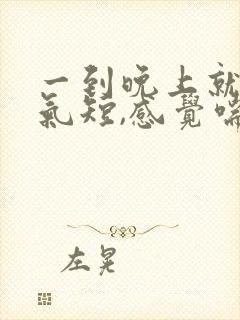 一到晚上就
氣短,感覺喘
左晃